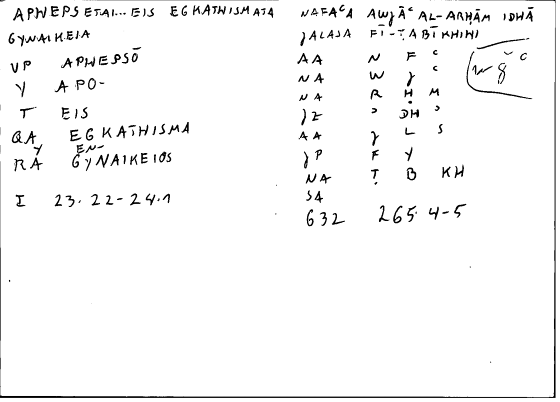 APHEPSETAI... EIS EGKATHISMATA
GYNAIKEIA
VP APHEPSŌ
Y APO-
T EIS
QA EGKATHISMA
Y EN-
RA GYNAIKEIOS
I 23.22-24.1
NAFAᶜA AWǧĀᶜ AL-ARḤĀM IDHĀ
ǧALASA FĪ-ṬABĪKHIHI
AA N F ᶜ
NA W ǧ ᶜ
NA R Ḥ M
ǧZ ʾ DH ʾ
AA ǧ L S
ǧP F Y
NA Ṭ B KH
SA
632 265.4-5
w ǧ ᶜ